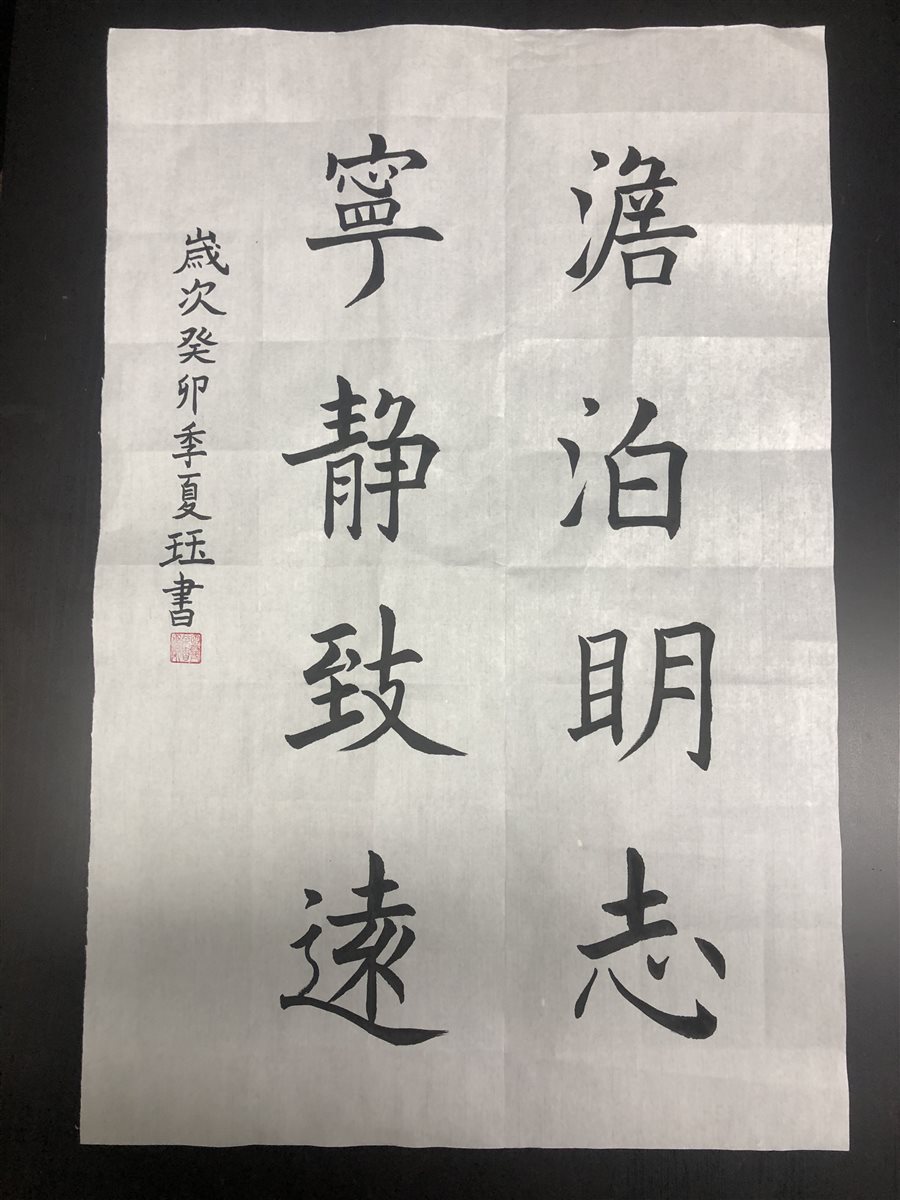 澹泊明志
寧静致遠
歲次癸卯季夏珏書